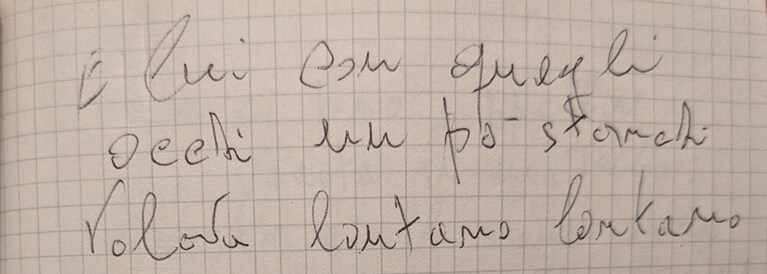 E lui con quegli
occhi un po' stanchi
Volava lontano lontano